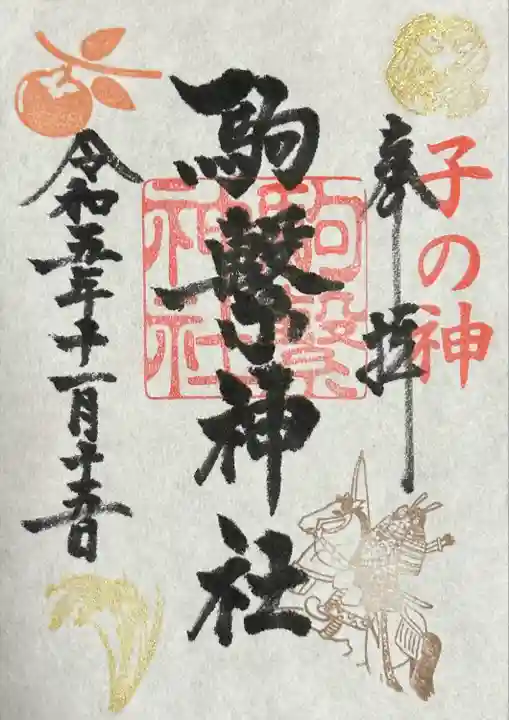 子の神
奉拝
駒繋神社
駒繋
神社
令和五年十一月十五日